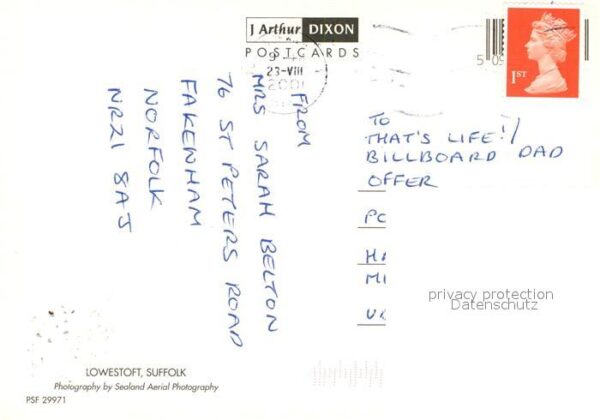 J Arthur DIXON
POSTCARDS
23-VIII
1ST
FROM
MRS SARAH BELTON
76 ST PETERS ROAD
FAKENHAM
NORFOLK
NR21 8AJ
TO
THAT'S LIFE!/
BILLBOARD DAD
OFFER
PC
privacy protection
Datenschutz
LOWESTOFT, SUFFOLK
Photography by Sealand Aerial Photography
PSF 29971